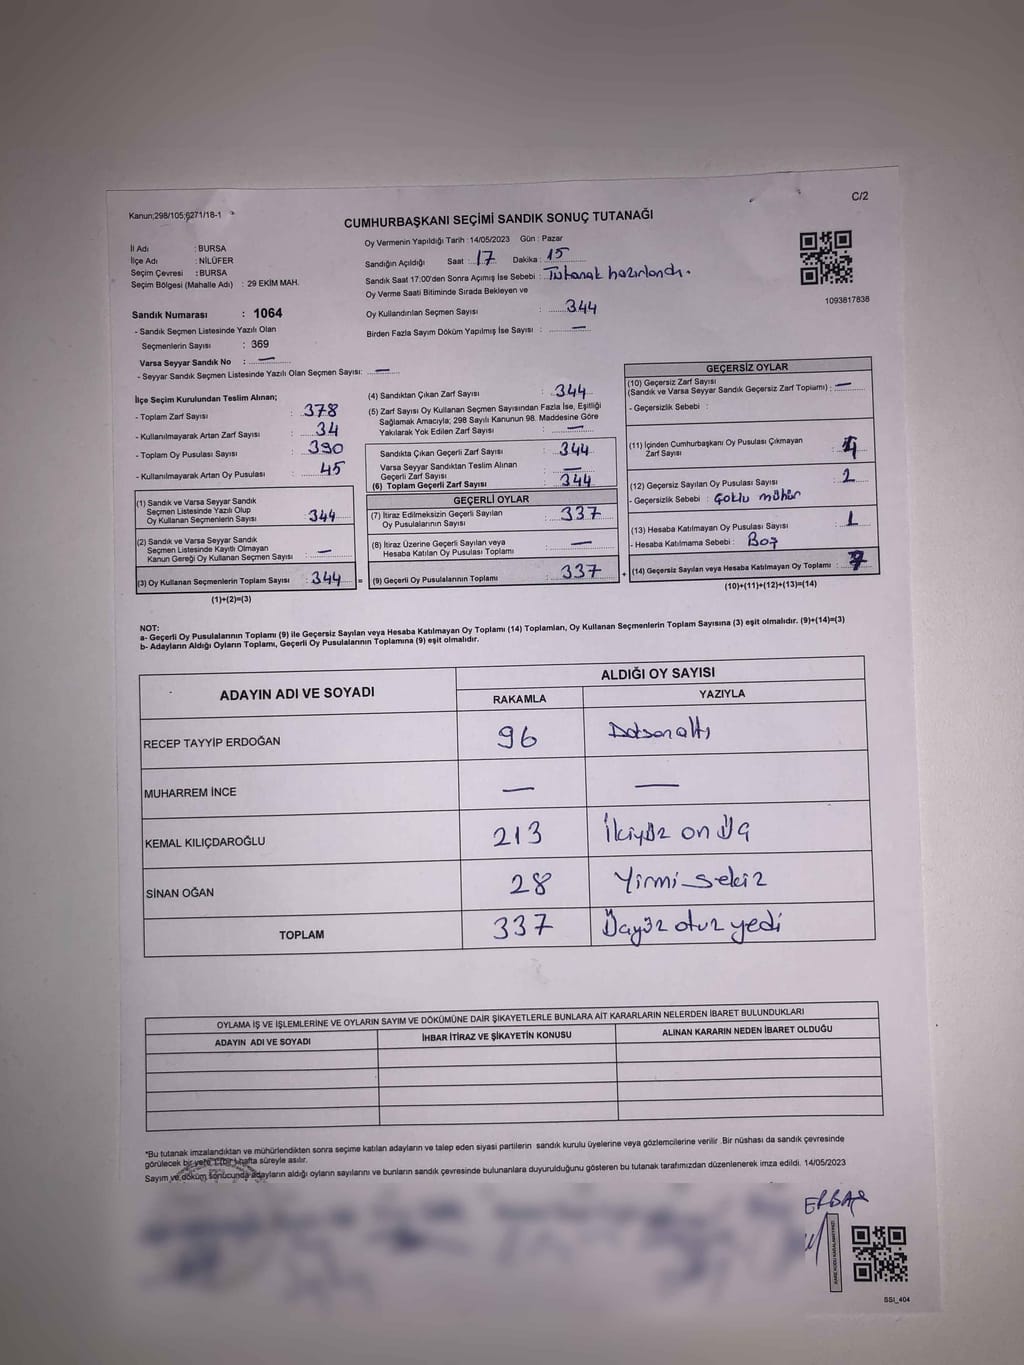 Kanun;298/105;6271/18-1
C/2
CUMHURBAŞKANI SEÇİMİ SANDIK SONUÇ TUTANAĞI
İl Adı : BURSA
İlçe Adı : NİLÜFER
Seçim Çevresi : BURSA
Seçim Bölgesi (Mahalle Adı) : 29 EKİM MAH.
Sandık Numarası : 1064
- Sandık Seçmen Listesinde Yazılı Olan
Seçmenlerin Sayısı : 369
Varsa Seyyar Sandık No : —
- Seyyar Sandık Seçmen Listesinde Yazılı Olan Seçmen Sayısı: —
Oy Vermenin Yapıldığı Tarih :14/05/2023 Gün : Pazar
Sandığın Açıldığı Saat : 17 Dakika : 15
Sandık Saat 17:00'den Sonra Açımış İse Sebebi : Tutanak hazırlandı.
Oy Verme Saati Bitiminde Sırada Bekleyen ve
Oy Kullandırılan Seçmen Sayısı : 344
Birden Fazla Sayım Döküm Yapılmış İse Sayısı : —
1093817838
İlçe Seçim Kurulundan Teslim Alınan;
- Toplam Zarf Sayısı : 378
- Kullanılmayarak Artan Zarf Sayısı : 34
- Toplam Oy Pusulası Sayısı : 390
- Kullanılmayarak Artan Oy Pusulası : 45
(1) Sandık ve Varsa Seyyar Sandık
Seçmen Listesinde Yazılı Olup
Oy Kullanan Seçmenlerin Sayısı : 344
(2) Sandık ve Varsa Seyyar Sandık
Seçmen Listesinde Kayıtlı Olmayan
Kanun Gereği Oy Kullanan Seçmen Sayısı : —
(3) Oy Kullanan Seçmenlerin Toplam Sayısı : 344 =
(1)+(2)=(3)
(4) Sandıktan Çıkan Zarf Sayısı : 344
(5) Zarf Sayısı Oy Kullanan Seçmen Sayısından Fazla İse, Eşitliği
Sağlamak Amacıyla; 298 Sayılı Kanunun 98. Maddesine Göre
Yakılarak Yok Edilen Zarf Sayısı : —
Sandıkta Çıkan Geçerli Zarf Sayısı : 344
Varsa Seyyar Sandıktan Teslim Alınan
Geçerli Zarf Sayısı : —
(6) Toplam Geçerli Zarf Sayısı : 344
GEÇERLİ OYLAR
(7) İtiraz Edilmeksizin Geçerli Sayılan
Oy Pusulalarının Sayısı : 337
(8) İtiraz Üzerine Geçerli Sayılan veya
Hesaba Katılan Oy Pusulası Toplamı : —
(9) Geçerli Oy Pusulalarının Toplamı : 337 +
GEÇERSİZ OYLAR
(10) Geçersiz Zarf Sayısı
(Sandık ve Varsa Seyyar Sandık Geçersiz Zarf Toplamı) : —
- Geçersizlik Sebebi :
(11) İçinden Cumhurbaşkanı Oy Pusulası Çıkmayan
Zarf Sayısı : 4
(12) Geçersiz Sayılan Oy Pusulası Sayısı : 2
- Geçersizlik Sebebi : Çoklu mühür
(13) Hesaba Katılmayan Oy Pusulası Sayısı : 1
- Hesaba Katılmama Sebebi : Boş
(14) Geçersiz Sayılan veya Hesaba Katılmayan Oy Toplamı : 7
(10)+(11)+(12)+(13)=(14)
NOT:
a- Geçerli Oy Pusulalarının Toplamı (9) ile Geçersiz Sayılan veya Hesaba Katılmayan Oy Toplamı (14) Toplamları, Oy Kullanan Seçmenlerin Toplam Sayısına (3) eşit olmalıdır. (9)+(14)=(3)
b- Adayların Aldığı Oyların Toplamı, Geçerli Oy Pusulalarının Toplamına (9) eşit olmalıdır.
ADAYIN ADI VE SOYADI
ALDIĞI OY SAYISI
RAKAMLA YAZIYLA
RECEP TAYYİP ERDOĞAN 96 Doksanaltı
MUHARREM İNCE — —
KEMAL KILIÇDAROĞLU 213 İkiyüz on üç
SİNAN OĞAN 28 Yirmi sekiz
TOPLAM 337 Üçyüz otuz yedi
OYLAMA İŞ VE İŞLEMLERİNE VE OYLARIN SAYIM VE DÖKÜMÜNE DAİR ŞİKAYETLERLE BUNLARA AİT KARARLARIN NELERDEN İBARET BULUNDUKLARI
ADAYIN ADI VE SOYADI İHBAR İTİRAZ VE ŞİKAYETİN KONUSU ALINAN KARARIN NEDEN İBARET OLDUĞU
*Bu tutanak imzalandıktan ve mühürlendikten sonra seçime katılan adayların ve talep eden siyasi partilerin sandık kurulu üyelerine veya gözlemcilerine verilir .Bir nüshası da sandık çevresinde
görülecek bir yere, 1 (bir) hafta süreyle asılır.
Sayım ve döküm sonucunda adayların aldığı oyların sayılarını ve bunların sandık çevresinde bulunanlara duyurulduğunu gösteren bu tutanak tarafımızdan düzenlenerek imza edildi. 14/05/2023
SSI_404